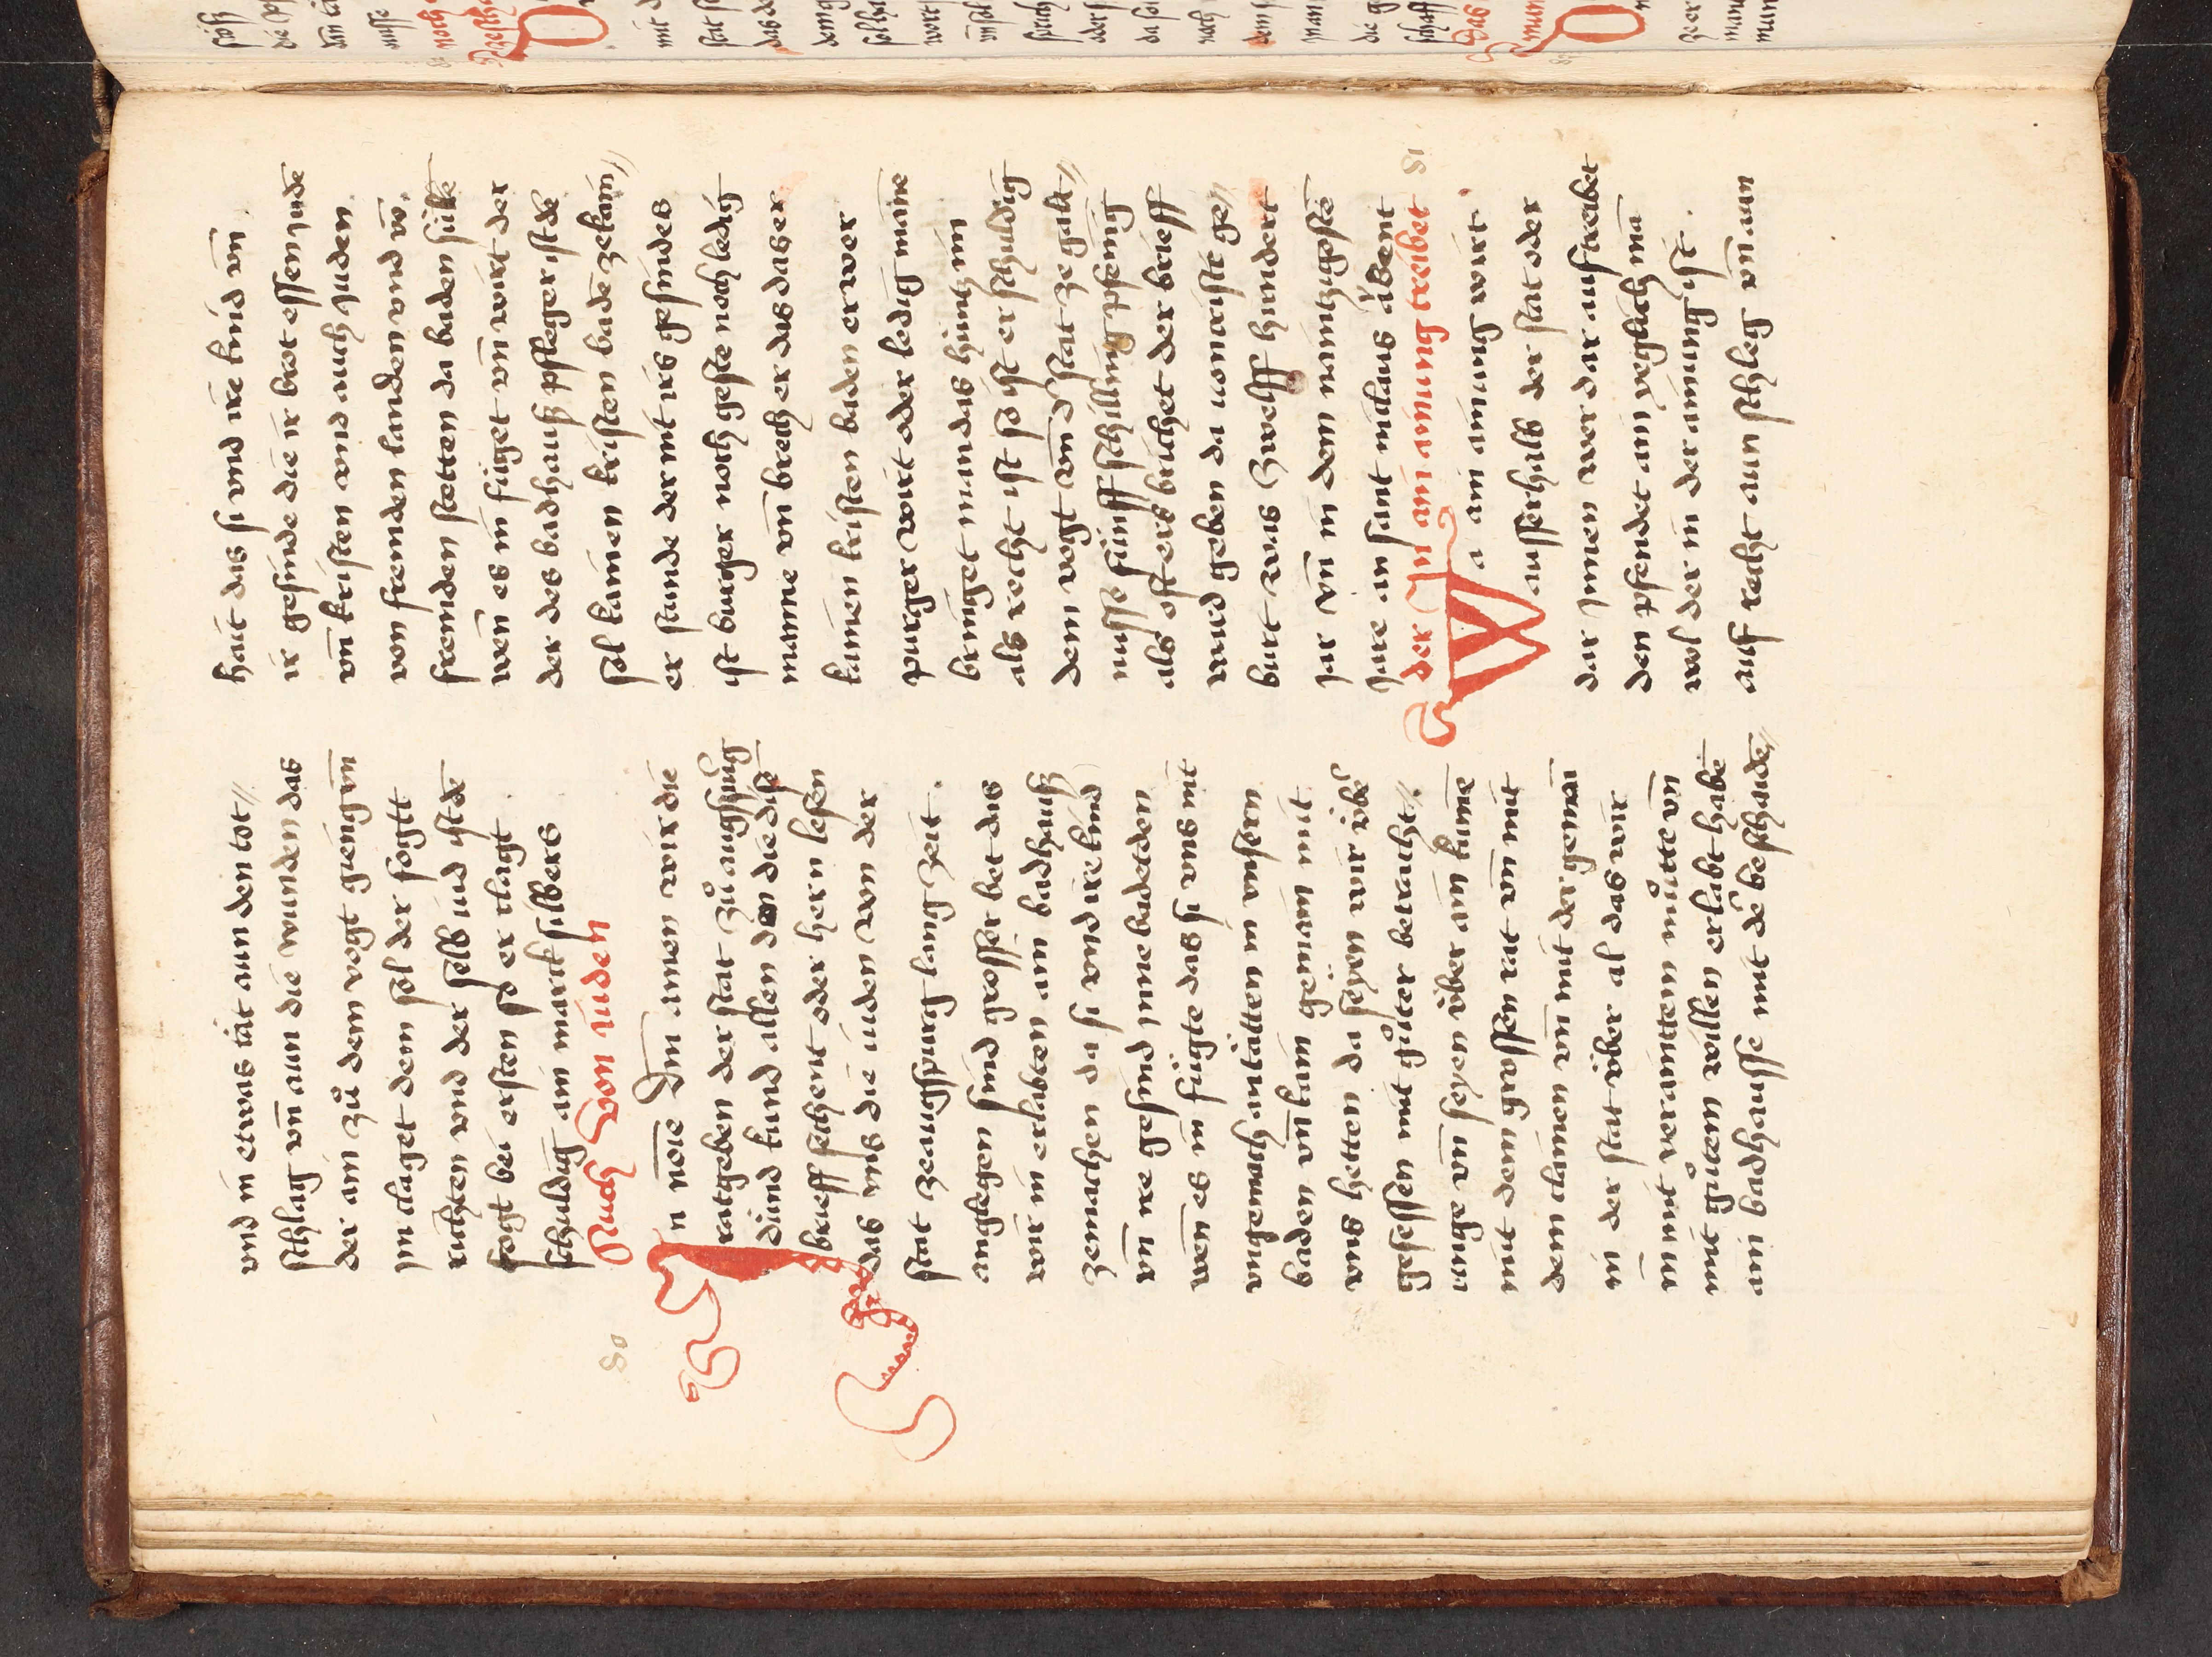 vnd in etwas tät aun den tot //
schlag vn̄ aun die wunden das
der ain zů dem vogt gieng vn̄
im claget dem sol der fogtt
richten vnd der selb iud ist dē
fogt bei ersten so er clagt
schuldig ain marck silbers
Auch von iuden
80
In noīe Dm̄ amen wir die
ratgeben der stat zů augspurg
düind kund allen den die dise
brieff sechent oder hern lesen
das vns die iuden von der
stat zeaugspurg lang zeit .
anglegen sind grosser bet das
wir in erlabten ain badhauß
zemachen da si vnd ire kind
vn̄ ire gesind inne badetden
wen̄ es in fügte das si vns mit
vngemach anlätten in vnsern
baden vn̄ kain gemain mit
vns hetten da seyen wir vber
gesessen mit gůter betracht //
unge vn̄ seyen vber ain kumē
mit dem grossen rat vn̄ mit
dem clainen vn̄ mit der gemai
in der stat vber al das wir
in mit veraintem můtte vn̄
mit gůtem willen erlabt habē
ain badhausse mit der beschaidē //
hait das si vnd ire kind vn̄
ir gesinde die ir brot essen iudē
vn̄ kristen vnd auch iuden
von fremden landen vnd vō
fremden stetten da baden sülē
wen̄ es in füget vn̄ wirt der
der des badhauß pfleger ist dē
sol kainen kristen badē zekain //
er stande der mit irs gesindes
ist burger noch geste noch ledig
manne vn̄ brech er das das er
kainen kristen baden er wer
purger wirt oder ledig manne
bringet man das hintz im
als recht ist so ist er schuldig
dem vogt vn̄ d' stat ze galt //
nusse fünff schilling pfennig
als oft ers brichet der brieff
ward geben da von cristi ge //
burt was zwelff hundert
jar vn̄ in dem naintzigostē
jare an sant niclaus abent
der In ain ainung treibet
81
Wa ain ainung wirt
ausserhalb der stat oder
dar innen wer dar auf treibet
den pfendet ain yeglich mā
wol der in der ainung ist .
auf recht aun schleg vn̄ aun